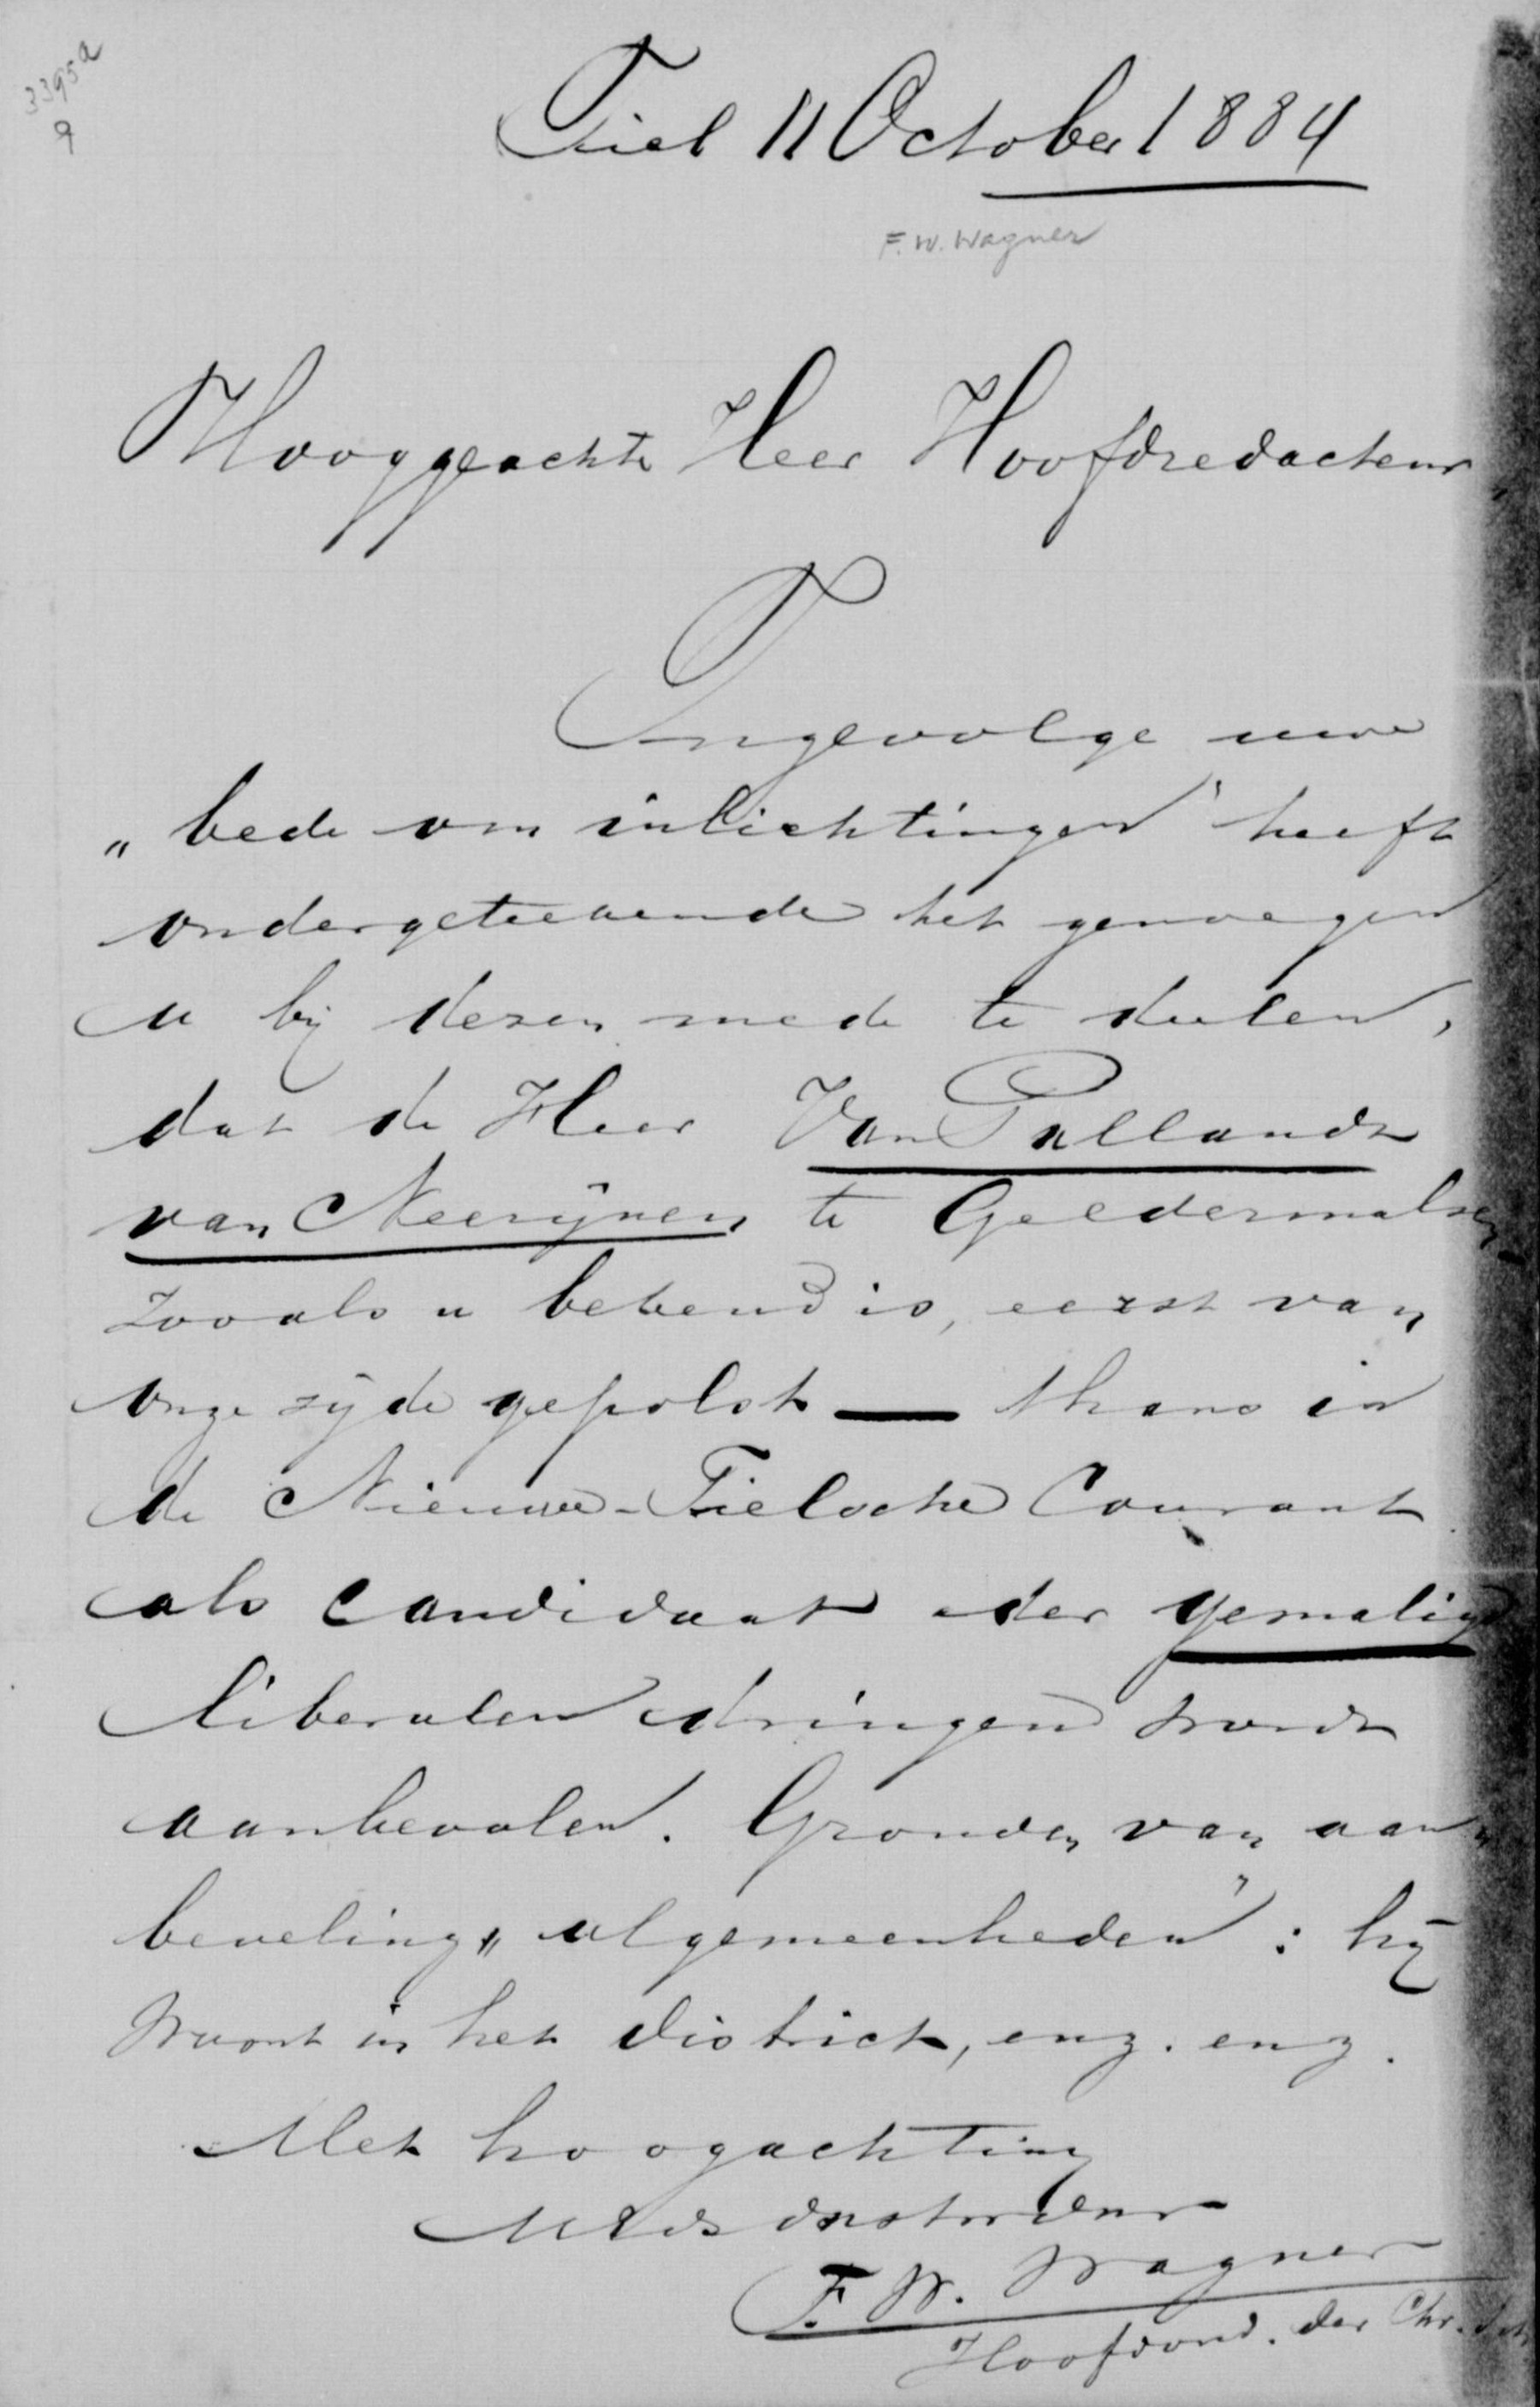 3395a
9
Tiel 11 October 1884
F. W. Wagner
Hooggeachte Heer Hoofdredacteur,
Tengevolge uwe
„bede om inlichtingen" heeft
ondergeteekende het genoegen
u bij dezen mede te deelen,
dat de Heer Van Pallandt
van Neerijnen te Geldermalsen
zooals u bekend is, eerst van
onze zijde gepolst — thans in
de Nieuwe-Tielsche Courant
als candidaat der gematigd
liberalen dringend wordt
aanbevolen. Gronden van aan-
beveling „algemeenheden": hij
woont in het district, enz. enz.
Met hoogachting
UEds dienstw. dienr
F. W. Wagner
Hoofdond. der Chr. Sch